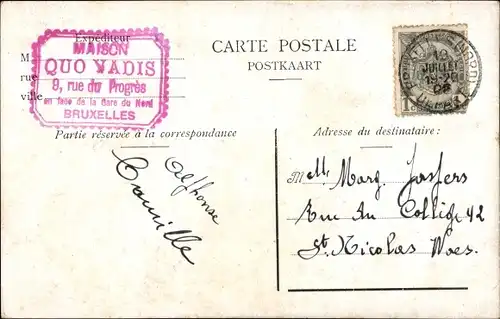 Expéditeur
MAISON
M
QUO VADIS
rue
9, rue du Progrès
ville
en face de la Gare du Nord
BRUXELLES
CARTE POSTALE
POSTKAART
12
JUILLET
1
Partie réservée à la correspondance
Alphonse
Camille
Adresse du destinataire:
Melle Marg. Jaspers
Rue du Collège 42
St. Nicolas Waes.